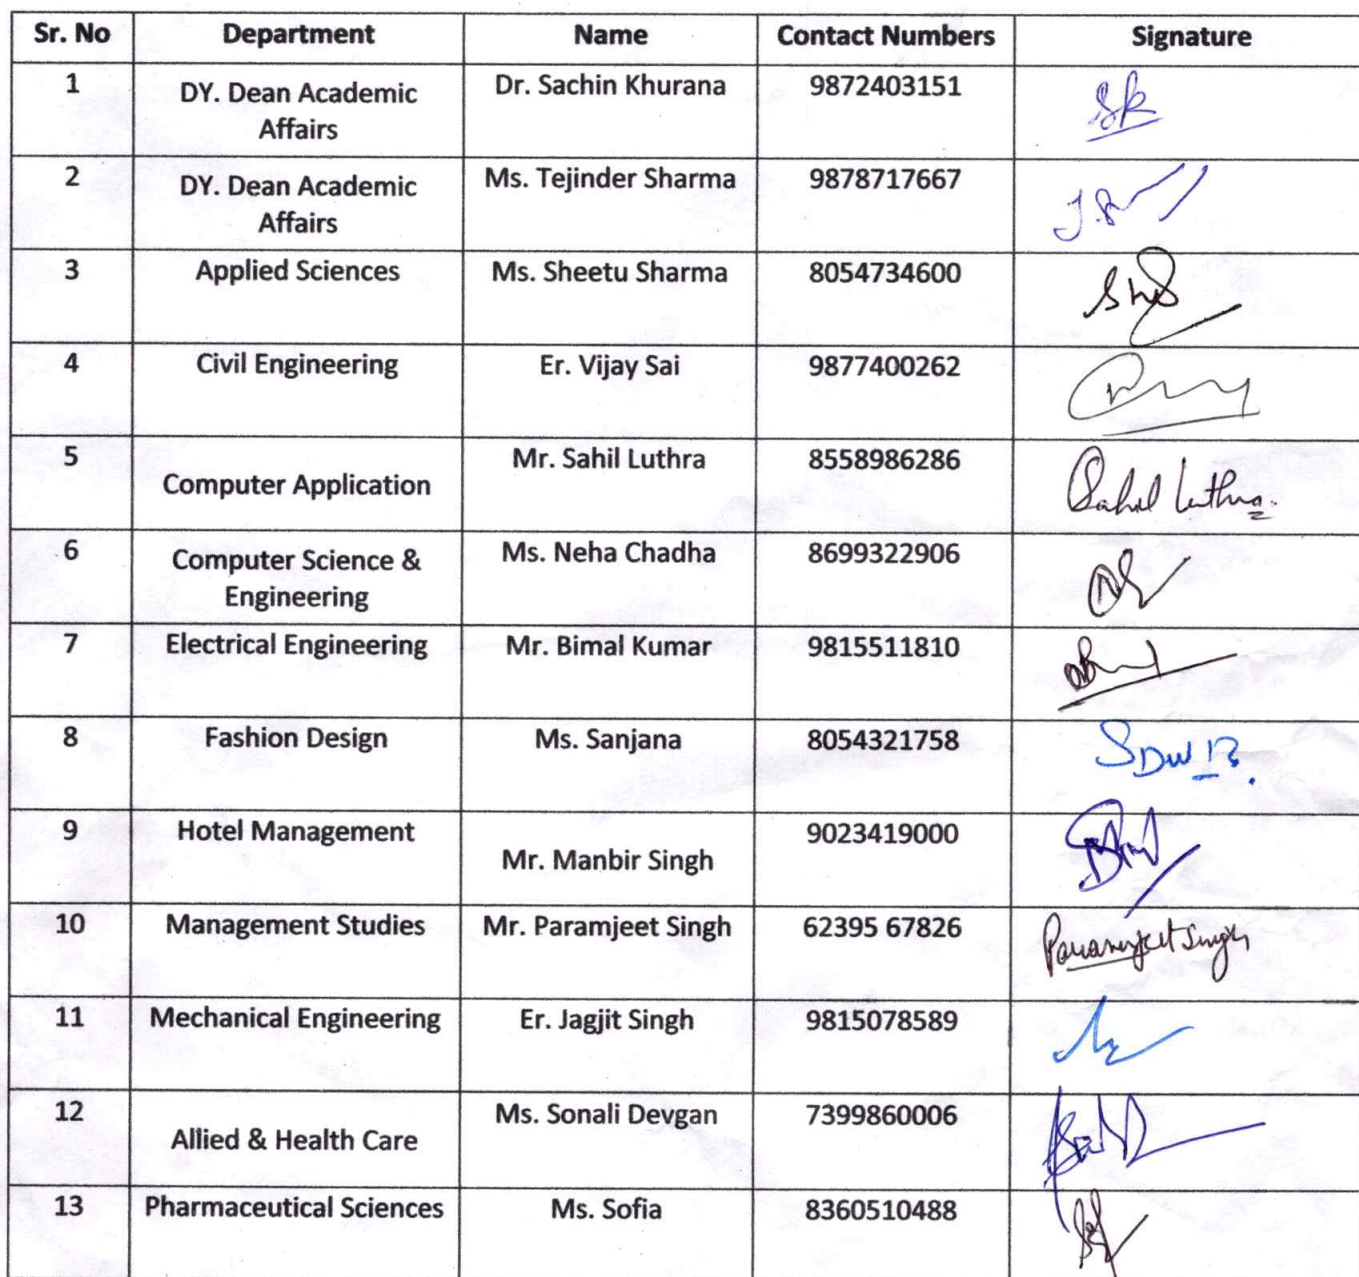 Sr. No Department Name Contact Numbers Signature
1 DY. Dean Academic Dr. Sachin Khurana 9872403151 SK
Affairs
2 DY. Dean Academic Ms. Tejinder Sharma 9878717667
Affairs
3 Applied Sciences Ms. Sheetu Sharma 8054734600
4 Civil Engineering Er. Vijay Sai 9877400262
5 Computer Application Mr. Sahil Luthra 8558986286 Sahil Luthra
6 Computer Science & Ms. Neha Chadha 8699322906
Engineering
7 Electrical Engineering Mr. Bimal Kumar 9815511810
8 Fashion Design Ms. Sanjana 8054321758
9 Hotel Management Mr. Manbir Singh 9023419000
10 Management Studies Mr. Paramjeet Singh 62395 67826 Paramjeet Singh
11 Mechanical Engineering Er. Jagjit Singh 9815078589
12 Allied & Health Care Ms. Sonali Devgan 7399860006
13 Pharmaceutical Sciences Ms. Sofia 8360510488